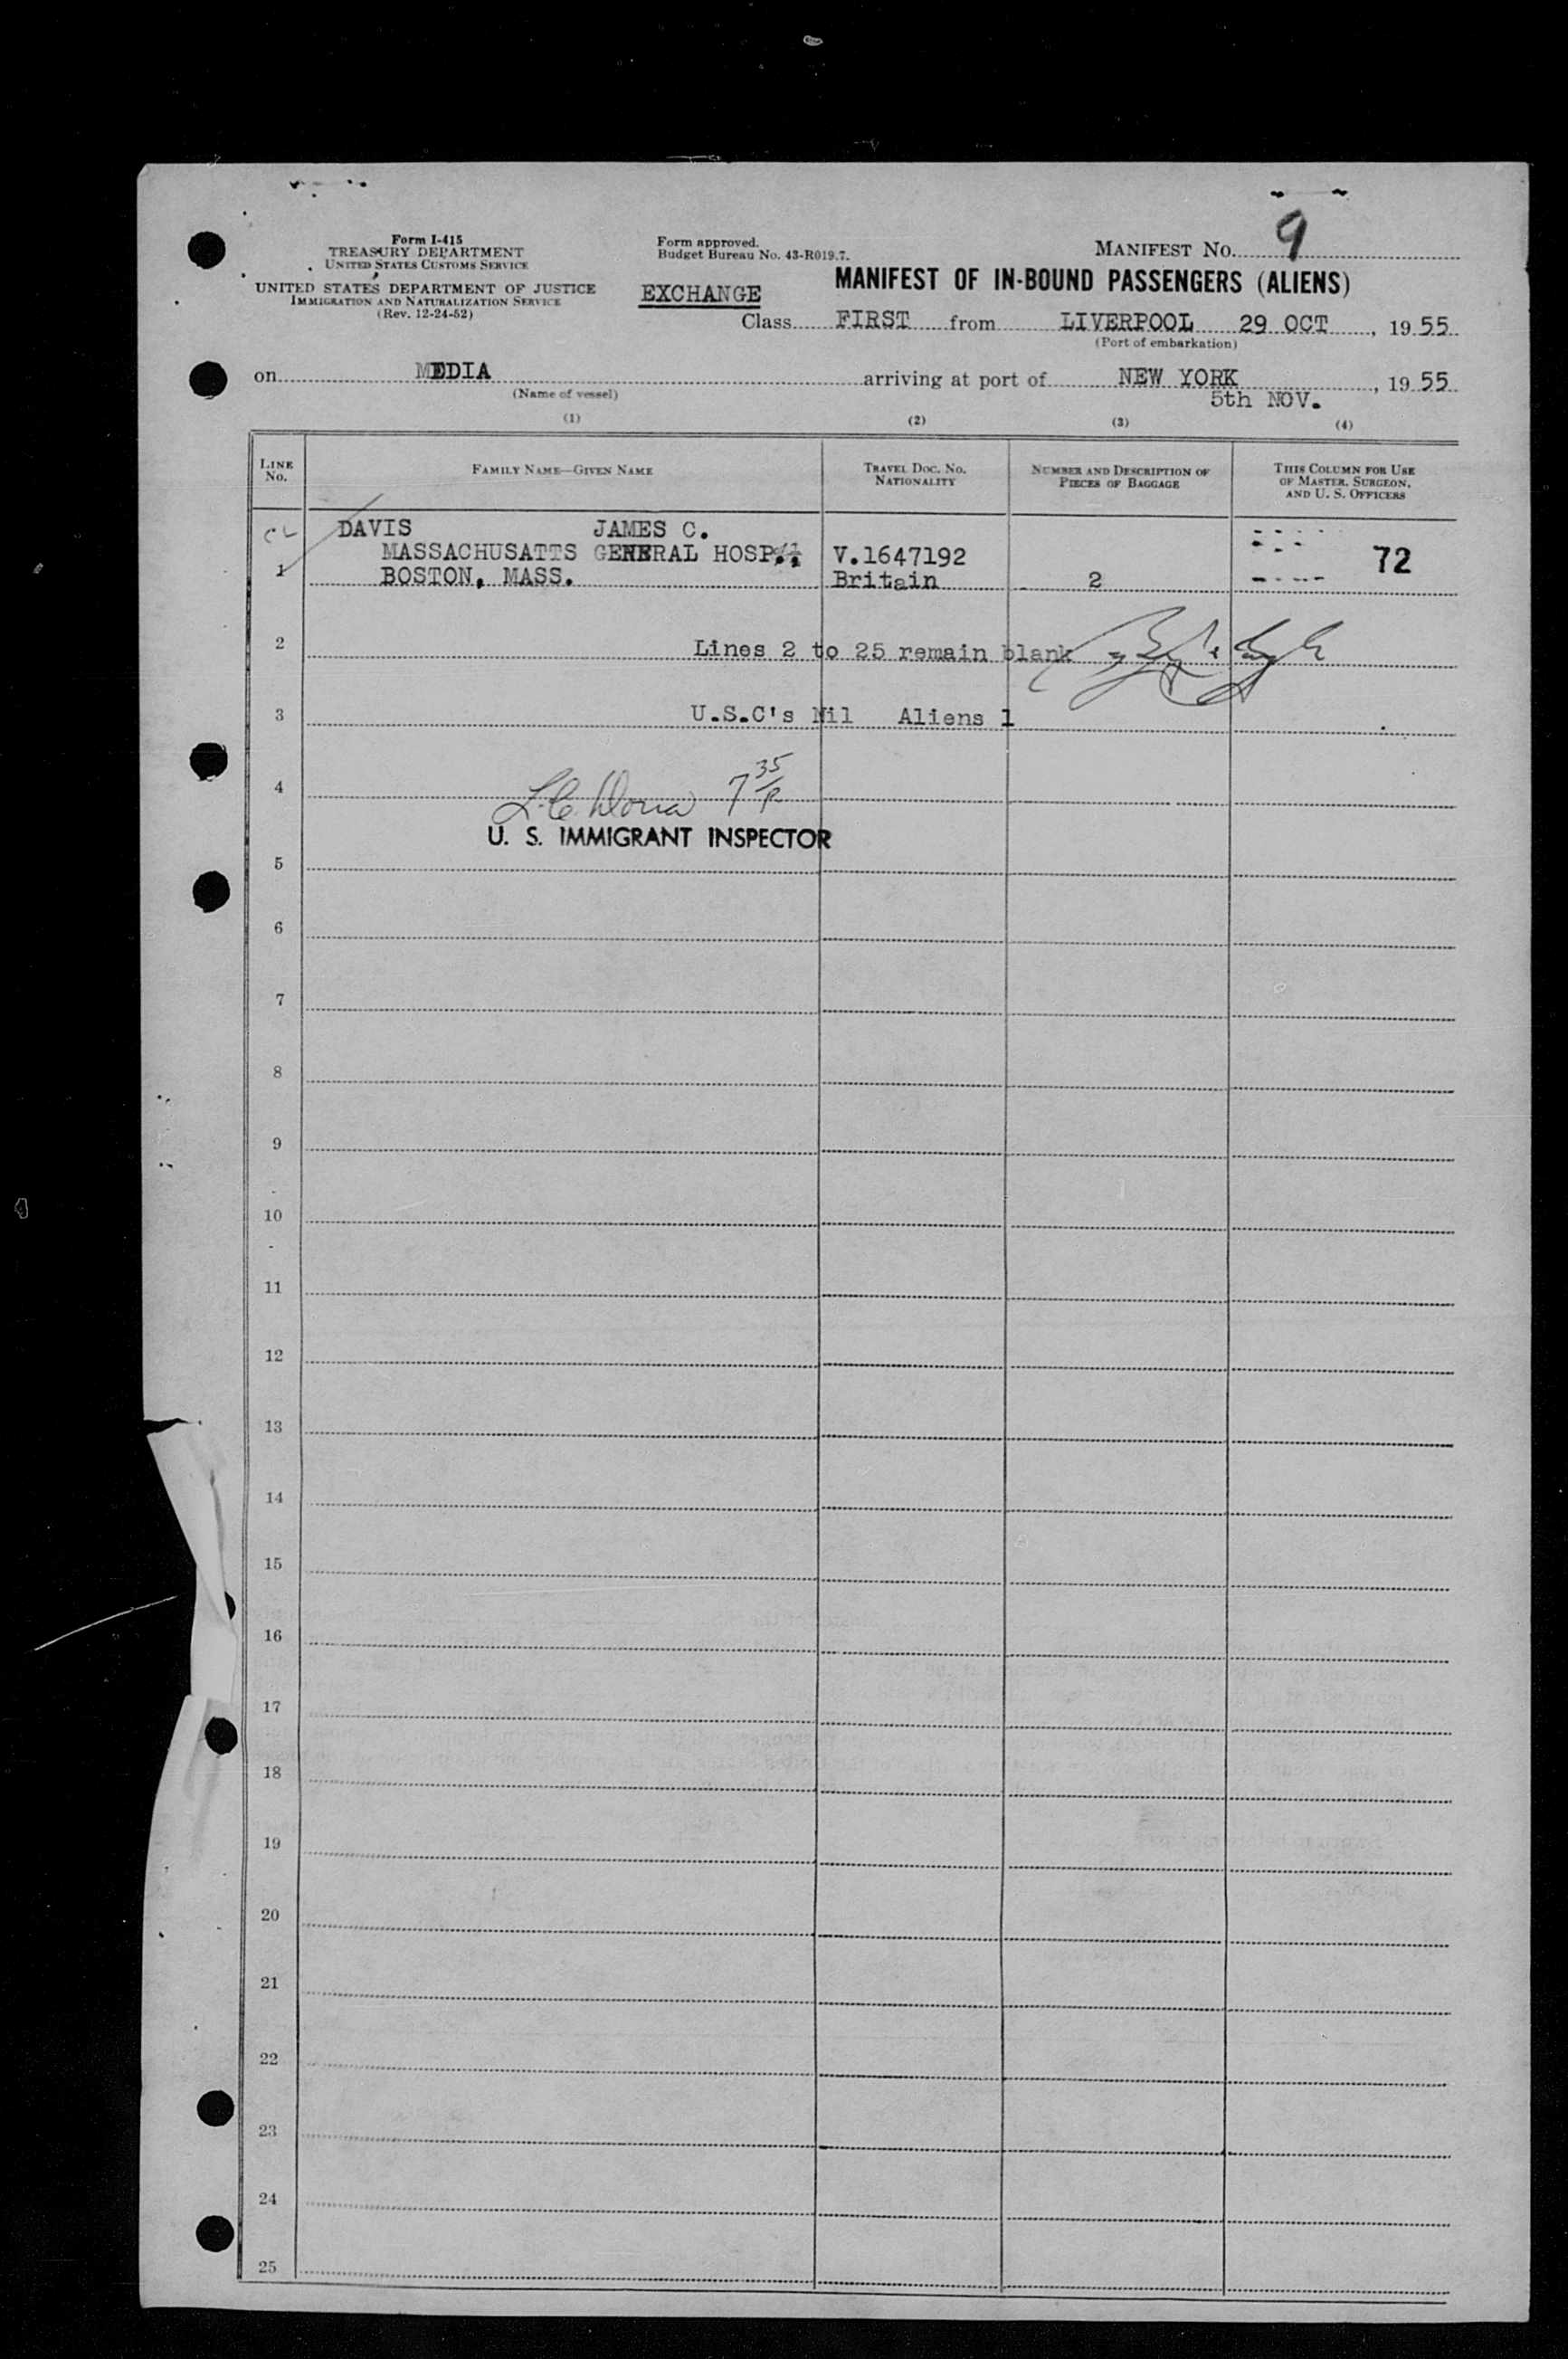 Form I-415
TREASURY DEPARTMENT
UNITED STATES CUSTOMS SERVICE
UNITED STATES DEPARTMENT OF JUSTICE
IMMIGRATION AND NATURALIZATION SERVICE
(Rev. 12-24-52)
Form approved.
Budget Bureau No. 43-R019.7.
EXCHANGE
MANIFEST No. 9
MANIFEST OF IN-BOUND PASSENGERS (ALIENS)
Class FIRST from LIVERPOOL 29 OCT, 1955
(Port of embarkation)
on MEDIA arriving at port of NEW YORK, 1955
(Name of vessel) 5th NOV.
(1) (2) (3) (4)
LINE No. FAMILY NAME—GIVEN NAME TRAVEL DOC. No. NATIONALITY NUMBER AND DESCRIPTION OF PIECES OF BAGGAGE THIS COLUMN FOR USE OF MASTER, SURGEON, AND U. S. OFFICERS
DAVIS JAMES C.
MASSACHUSATTS GENERAL HOSP. V.1647192 72
1 BOSTON, MASS. Britain 2
2 Lines 2 to 25 remain blank
3 U.S.C's Nil Aliens 1
4 7 35
U. S. IMMIGRANT INSPECTOR
5
6
7
8
9
10
11
12
13
14
15
16
17
18
19
20
21
22
23
24
25